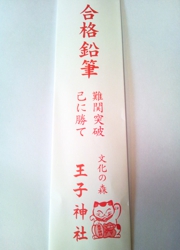 合格鉛筆
難関突破
己に勝て
文化の森
王子神社